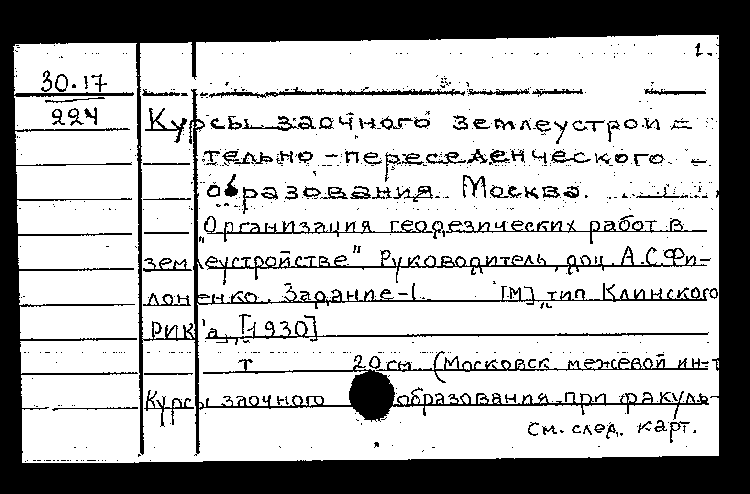 1.
30.17
224
Курсы заочного землеустрои=
тельно-переселенческого
образования Москва.
„Организация геодезических работ в
землеустройстве" Руководитель, доц. А.С.Фи-
лоненко. Задание-1. [М], тип Клинского
РИК'а, [1930]
т 20см (Московск. межевой ин-т
Курсы заочного образования при факуль-
См. след. карт.